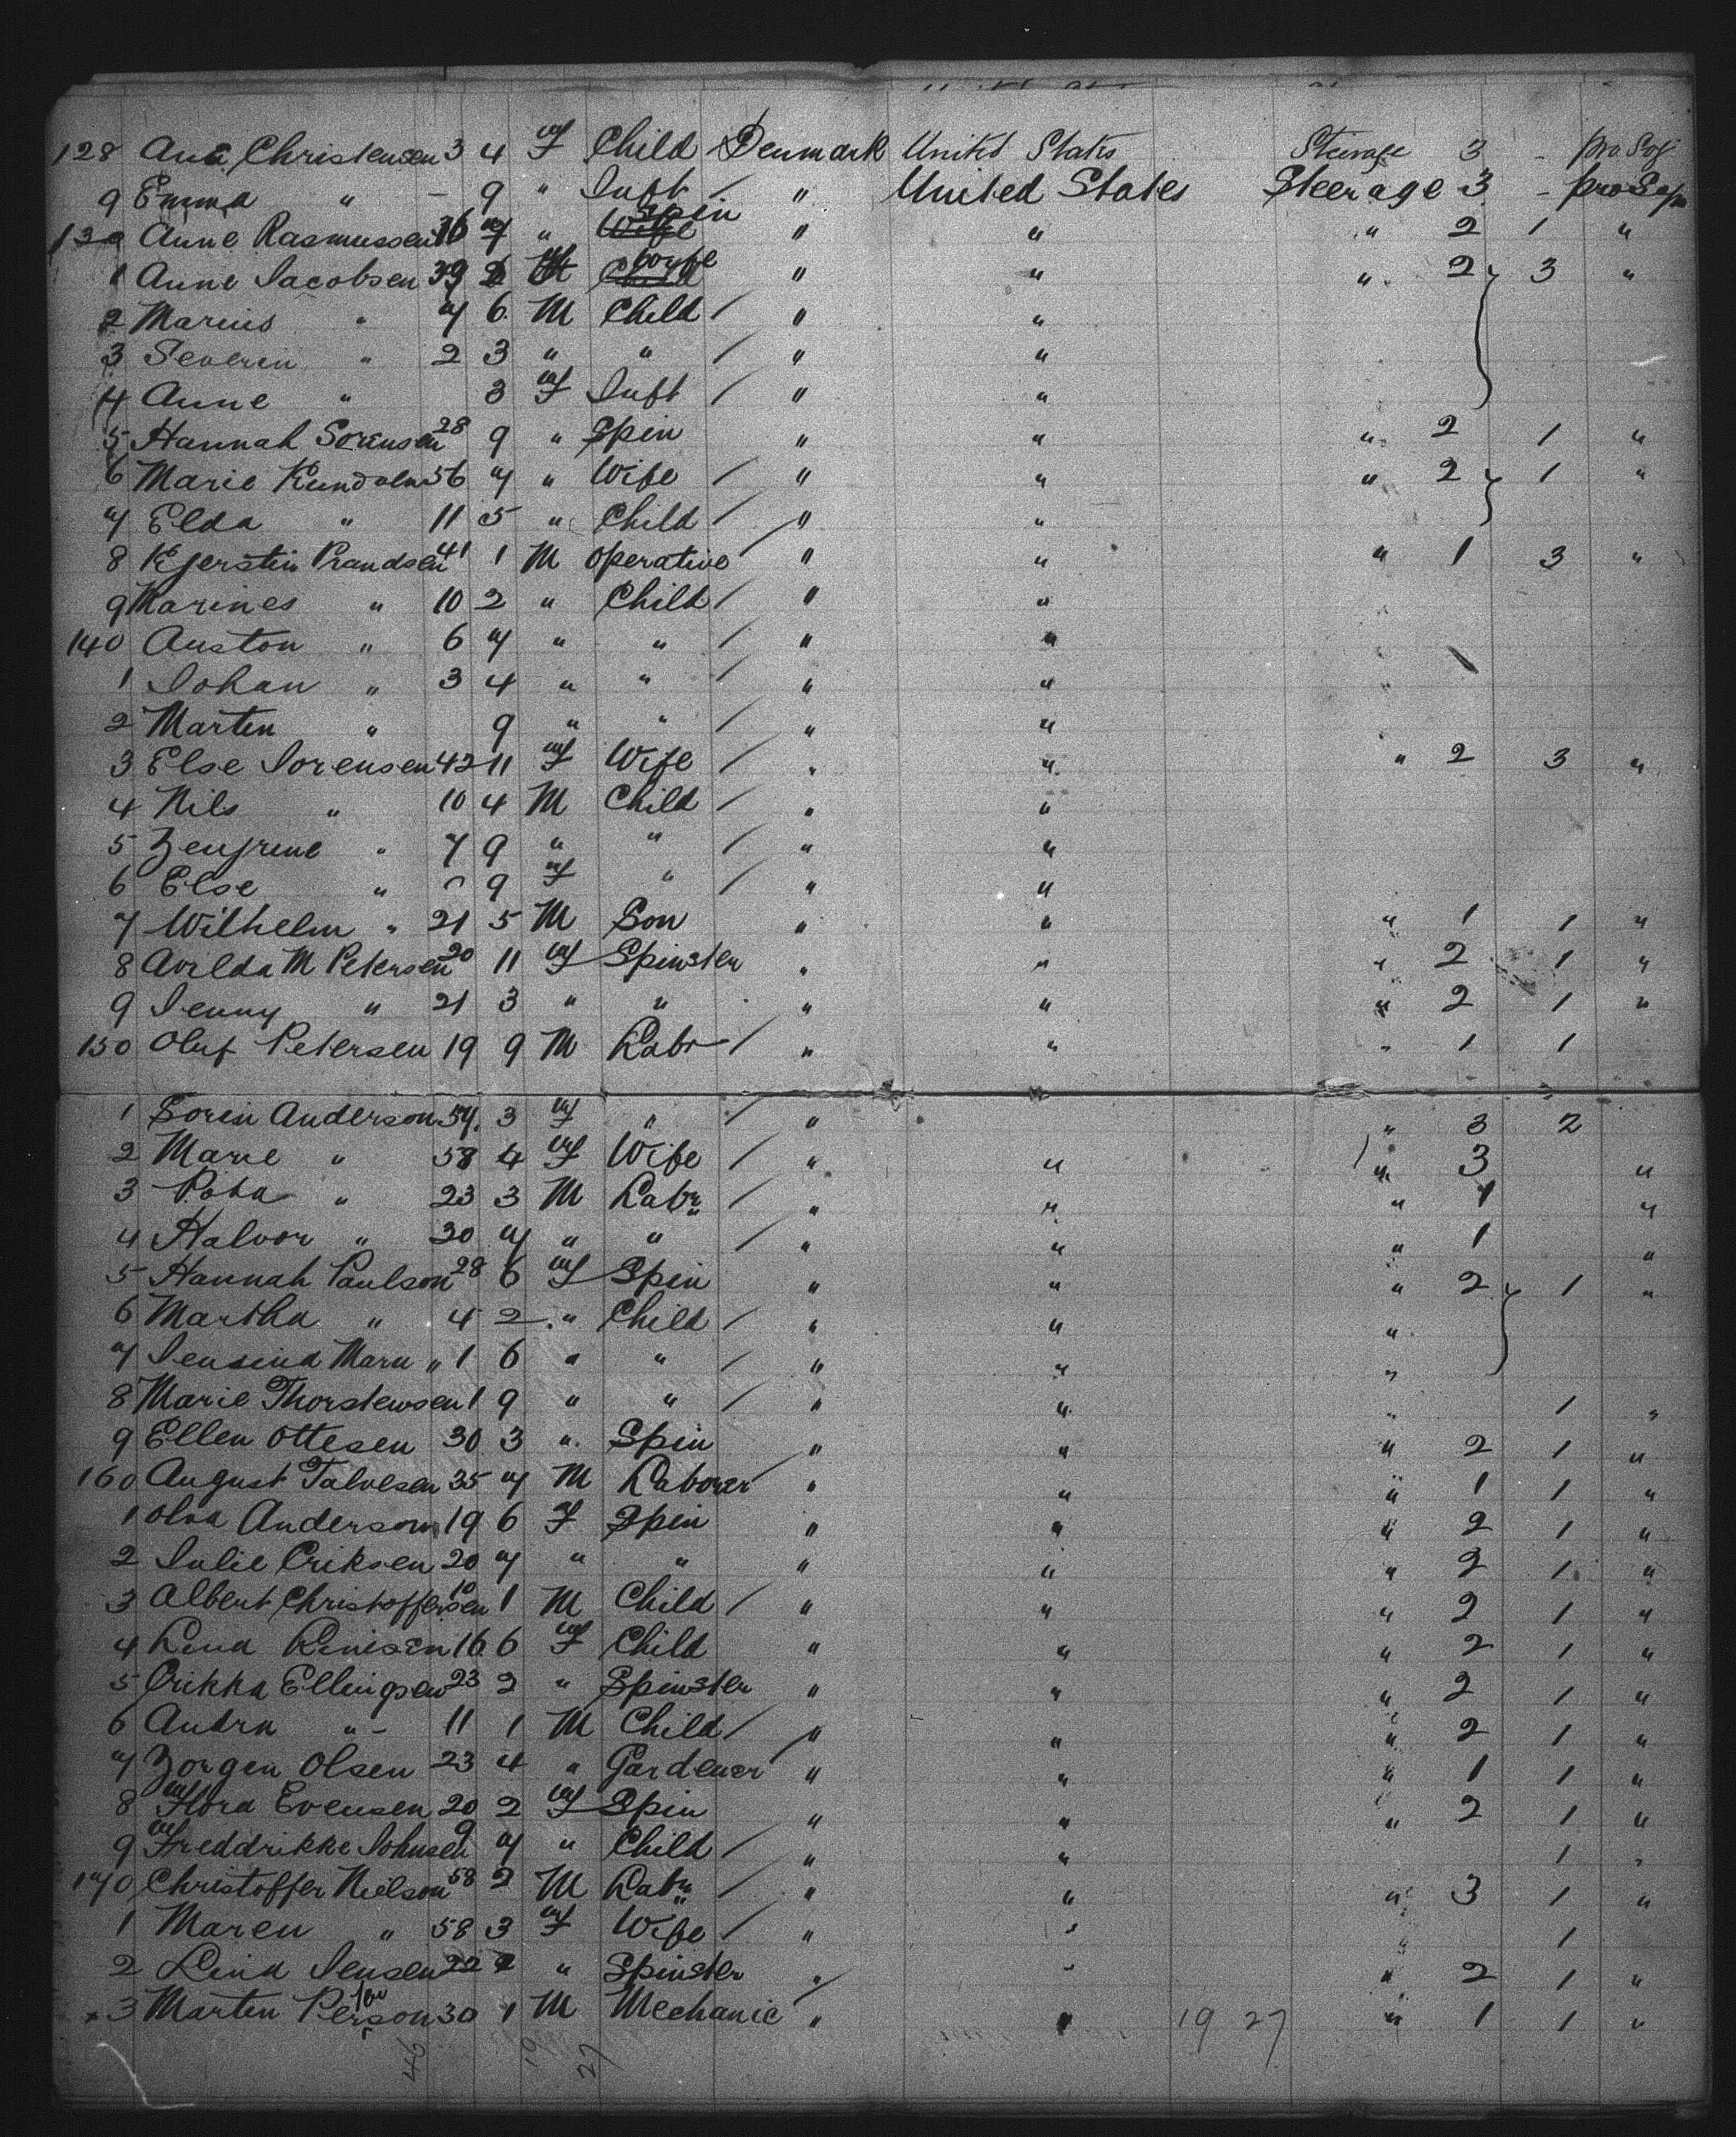 128 Ana Christensen 3 4 F Child Denmark United States Steerage 3 - pro Soj
9 Emma " - 9 " Inft / " United States Steerage 3 - pro Soj
130 Anne Rasmussen 36 7 " Wife Spin " " " 2 1 "
1 Anne Jacobsen 39 M Child Wife " " " 2 3 "
2 Marius " 7 6 M Child / " "
3 Severin " 2 3 " " / " "
4 Anne " 3 F Inft / " "
5 Hannah Sorensen 28 9 " Spin " " " 2 1 "
6 Marie 56 7 " Wife / " " " 2 1 "
7 Elda " 11 5 " Child / " "
8 Kjerstin 41 1 M Operative / " " " 1 3 "
9 Marines " 10 2 " Child / " "
140 Auston " 6 7 " " / " "
1 Johan " 3 4 " " / " "
2 Marten " 9 " " / " "
3 Else Sorensen 42 11 F Wife / " " " 2 3 "
4 Nils " 10 4 M Child / " "
5 " 7 9 " " / " "
6 Else " 9 F " / " "
7 Wilhelm " 21 5 M Son " " " 1 1 "
8 Avilda M Petersen 20 11 F Spinster " " " 2 1 "
9 Jenny " 21 3 " " " " " 2 1 "
150 Oluf Petersen 19 9 M Labr / " " " 1 1
1 Soren Anderson 57 3 F " / " " 3 2
2 Marie " 58 4 F Wife / " " " 3 "
3 " 23 3 M Labr / " " " 1 "
4 Halvor " 30 7 " " / " " " 1 "
5 Hannah Paulson 28 6 F Spin " " " 2 1 "
6 Martha " 4 2 " Child / " " "
7 Jensina Marn " 1 6 " " / " " "
8 Marie Thorstewsen 1 9 " " / " " " 1 "
9 Ellen Ottesen 30 3 " Spin " " " 2 1 "
160 August Talvesen 35 7 M Laborer / " " " 1 1 "
1 Olva Anderson 19 6 F Spin " " " 2 1 "
2 Julie Eriksen 20 7 " " " " " 2 1 "
3 Albert Christoffersen 10 1 M Child / " " " 2 1 "
4 Lena 16 6 F Child " " " 2 1 "
5 Erikka Ellingsen 23 2 " Spinster " " " 2 1 "
6 Andrn " - 11 1 M Child / " " " 2 1 "
7 Zorgen Olsen 23 4 " Gardener " " " 1 1 "
8 Flora Evensen 20 2 F Spin " " " 2 1 "
9 Freddrikke Johnsen 9 7 " Child / " " 1 "
170 Christoffer Nielson 58 2 M Labr / " " " 3 1 "
1 Maren " 58 3 F Wife / " " " 1
2 Lena Jensen 22 2 " Spinster " " " 2 1 "
x 3 Marten Person 30 1 M Mechanic / " " 19 27 " 1 1 "
46 19 27